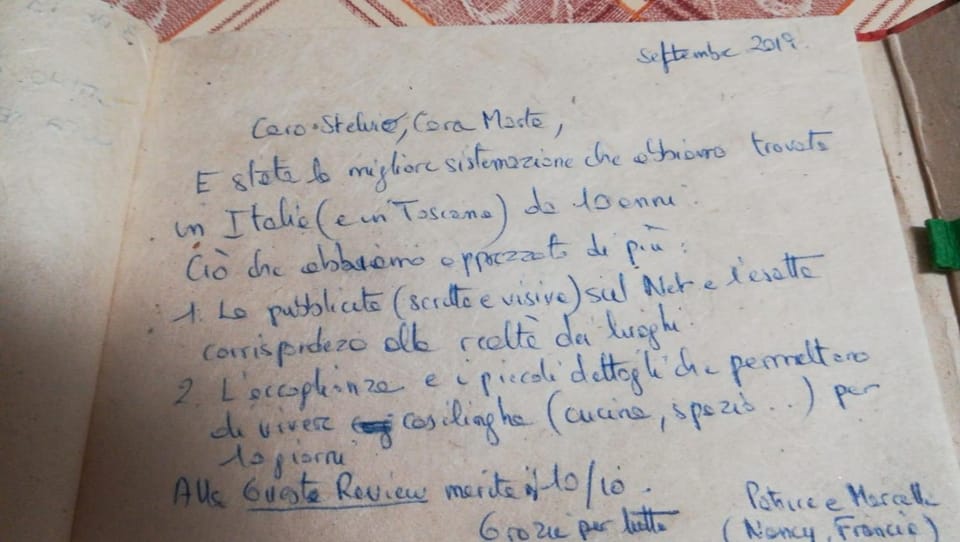 Septembre 2019.
Caro Stelvio, Cara Marta,
E stata la migliore sistemazione che abbiamo trovato
in Italia (e in Toscana) da 10 anni.
Ciò che abbiamo apprezzato di più:
1. La pubblicita (scritta e visiva) sul Net e l'esatta
corrispondeza alla realtà dei luoghi.
2. L'accoglienza e i piccoli dettagli che permettono
di vivere casilinghe (cucina, spazio...) per
10 giorni
Alla Guesta Review merita il 10/10.
Grazie per tutto
Patrice e Marcelle
(Nancy, Francia)